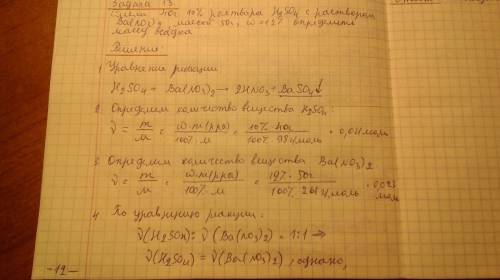 Задача 13.
40г 10% раствора H₂SO₄ с раствором
Ba(NO₃)₂ массой 50г, определить
массу осадка
Решение:
1. Уравнение реакции
H₂SO₄ + Ba(NO₃)₂ → 2HNO₃ + BaSO₄↓
2. Определяем количество вещества H₂SO₄:
ν = m/M = ω·m(р-ра)/100%·M = 10%·40г/100%·98г/моль = 0,041моль
3. Определяем количество вещества Ba(NO₃)₂
ν = m/M = ω·m(р-ра)/100%·M = ·50г/100% = 0,023 моль
4. По уравнению реакции:
ν(H₂SO₄) : ν(Ba(NO₃)₂) = 1:1 ⇒
ν(H₂SO₄) = ν(Ba(NO₃)₂), однако,
-12-